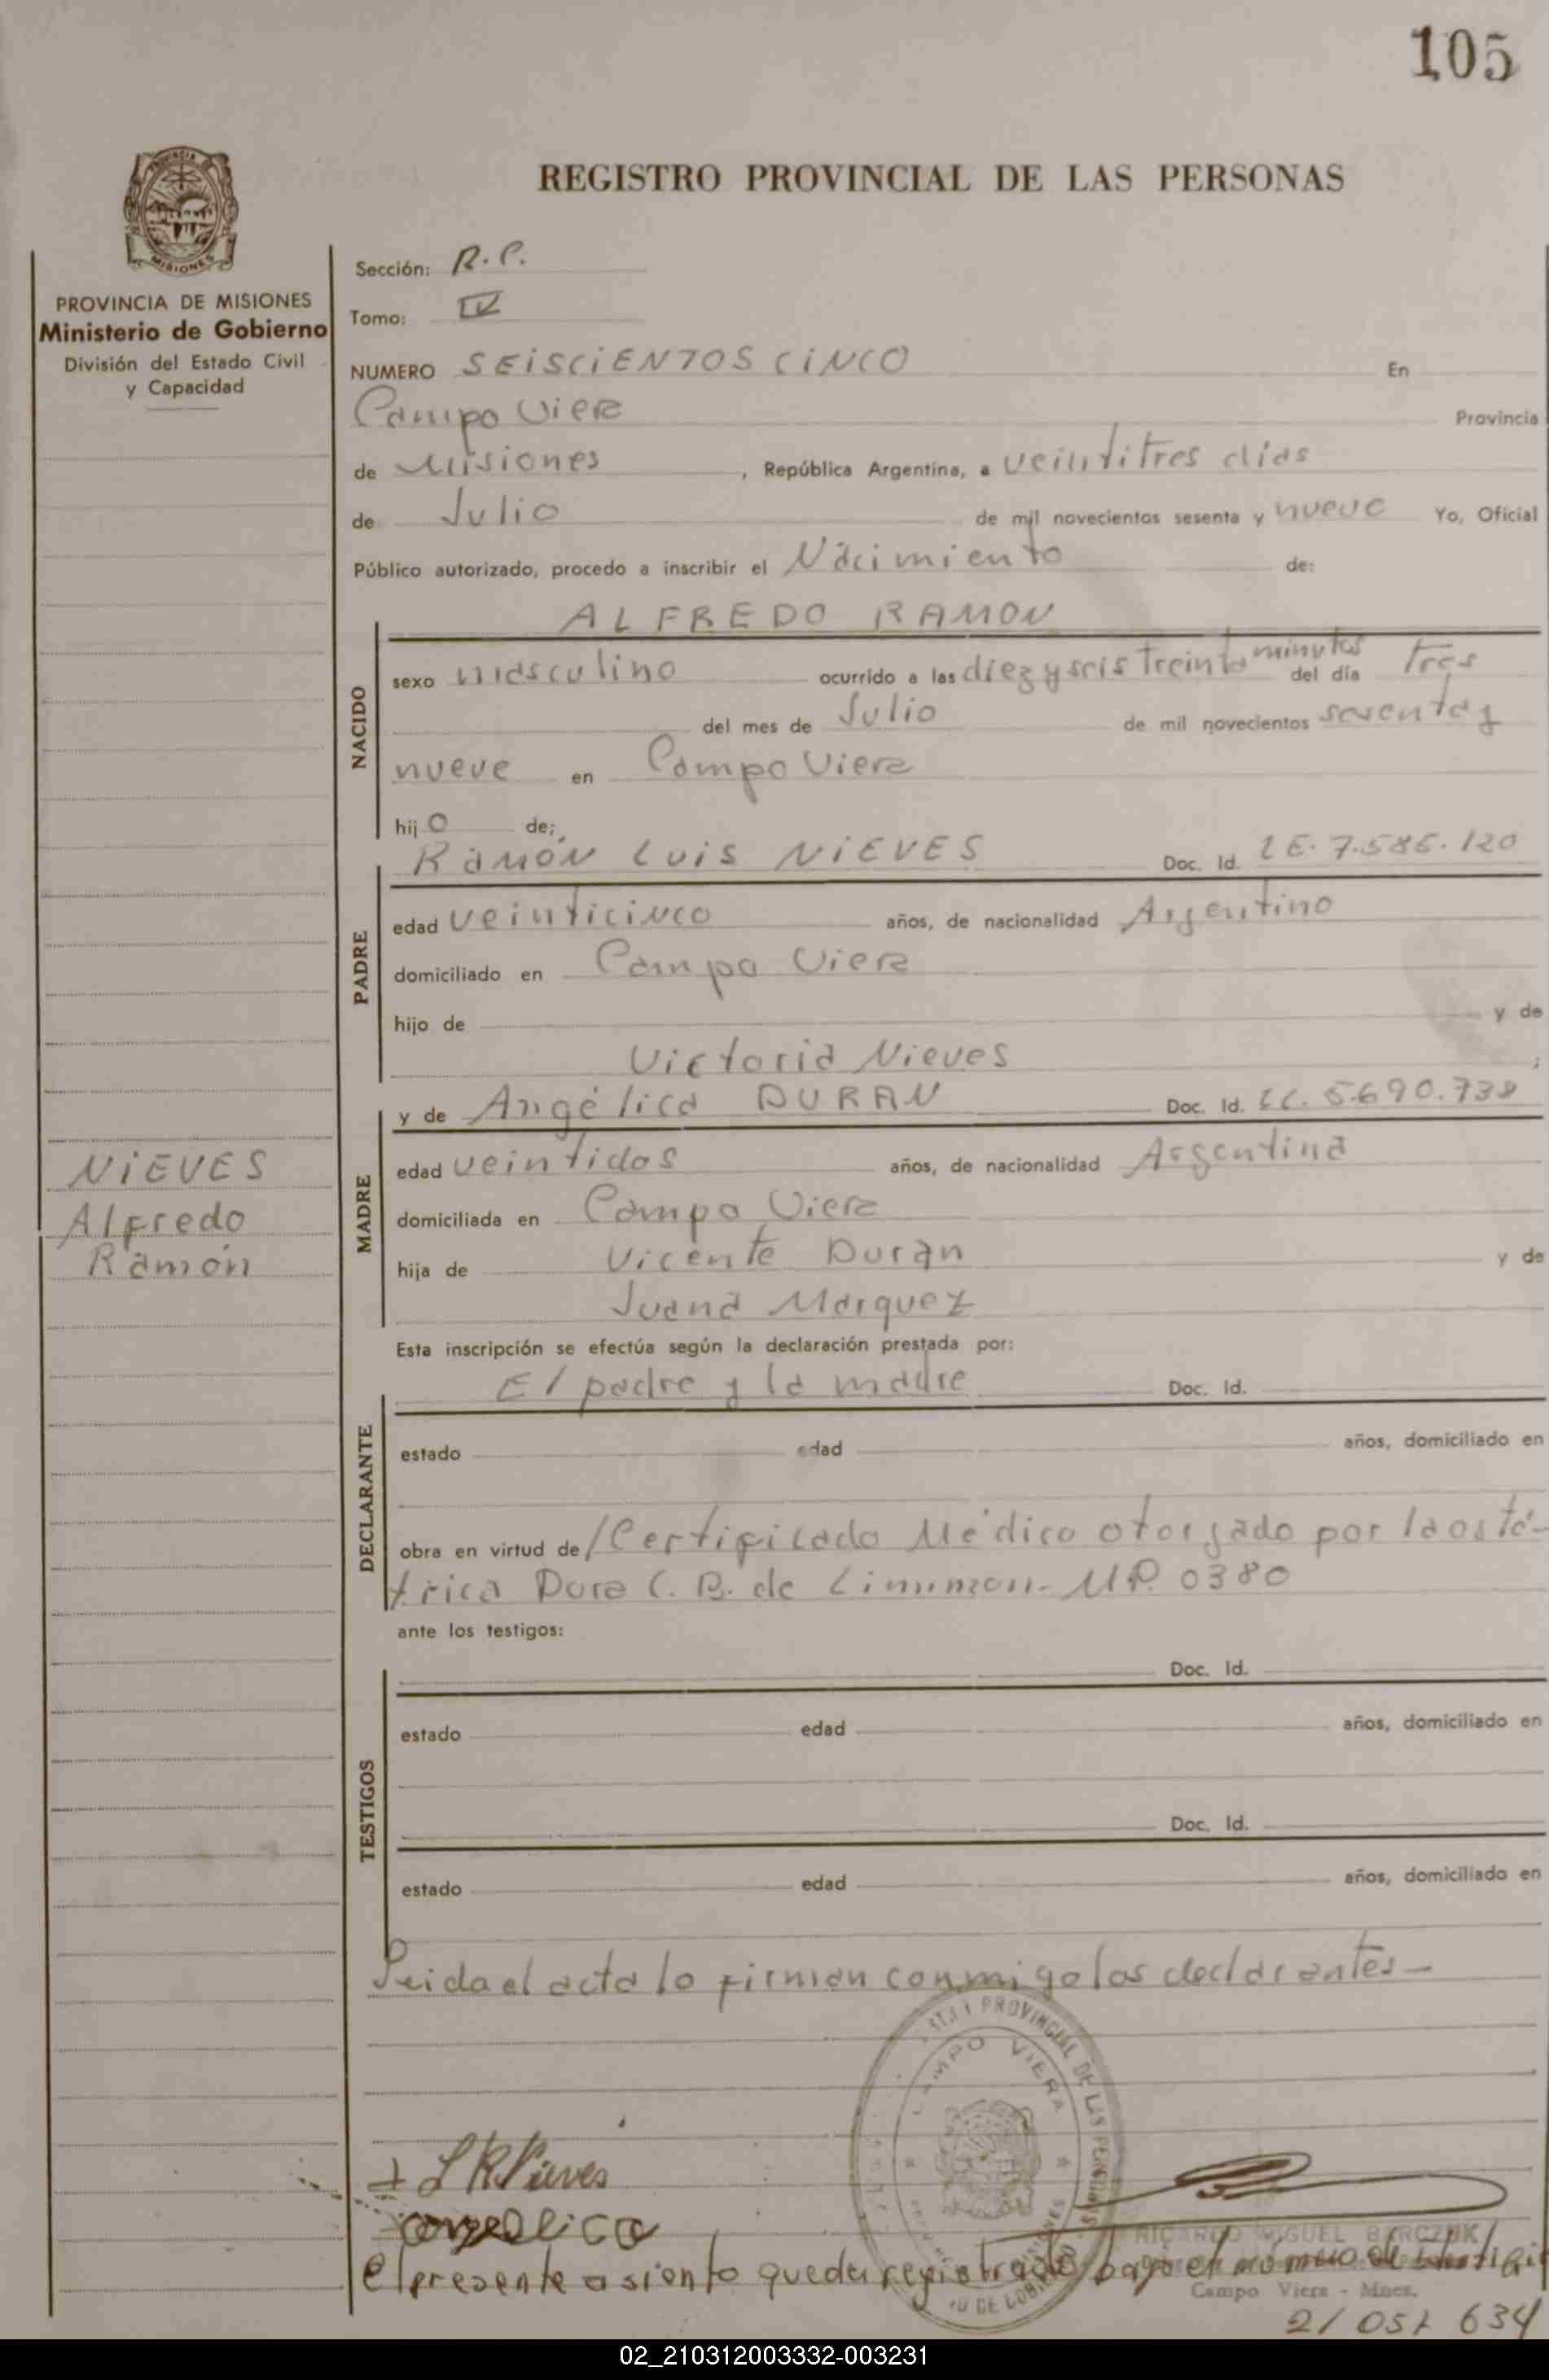 105
REGISTRO PROVINCIAL DE LAS PERSONAS
MISIONES
PROVINCIA DE MISIONES
Ministerio de Gobierno
División del Estado Civil
y Capacidad
Sección: R.P.
Tomo: IV
NUMERO SEISCIENTOS CINCO En
Campo Viera Provincia
de Misiones, República Argentina, a veintitres dias
de Julio de mil novecientos sesenta y nueve Yo, Oficial
Público autorizado, procedo a inscribir el Nacimiento de:
ALFREDO RAMON
NACIDO
sexo masculino ocurrido a las diez y seis treinta minutos del día tres
del mes de Julio de mil novecientos sesenta y
nueve en Campo Viera
hijo de;
PADRE
Ramón Luis NIEVES Doc. Id. LE. 7.586.120
edad veinticinco años, de nacionalidad Argentino
domiciliado en Campo Viera
hijo de y de
Victoria Nieves ;
MADRE
y de Angélica DURAN Doc. Id. LC. 5.690.738
edad veintidos años, de nacionalidad Argentina
domiciliada en Campo Viera
hija de Vicente Duran y de
Juana Marquez
NIEVES
Alfredo
Ramón
Esta inscripción se efectúa según la declaración prestada por:
DECLARANTE
El padre y la madre Doc. Id.
estado edad años, domiciliado en
obra en virtud de/Certificado Médico otorgado por la osté-
trica Dora C. B. de M.P. 0380
ante los testigos:
TESTIGOS
Doc. Id.
estado edad años, domiciliado en
Doc. Id.
estado edad años, domiciliado en
Leida el acta lo firman conmigo los declarantes-
PROVINCIAL DE LAS PERSONAS
CAMPO VIERA
L R Nieves
angelica
RICARDO MIGUEL BARCZUK
El presente asiento queda registrado bajo el número de
Campo Viera - Mnes.
21 051 634
02_210312003332-003231